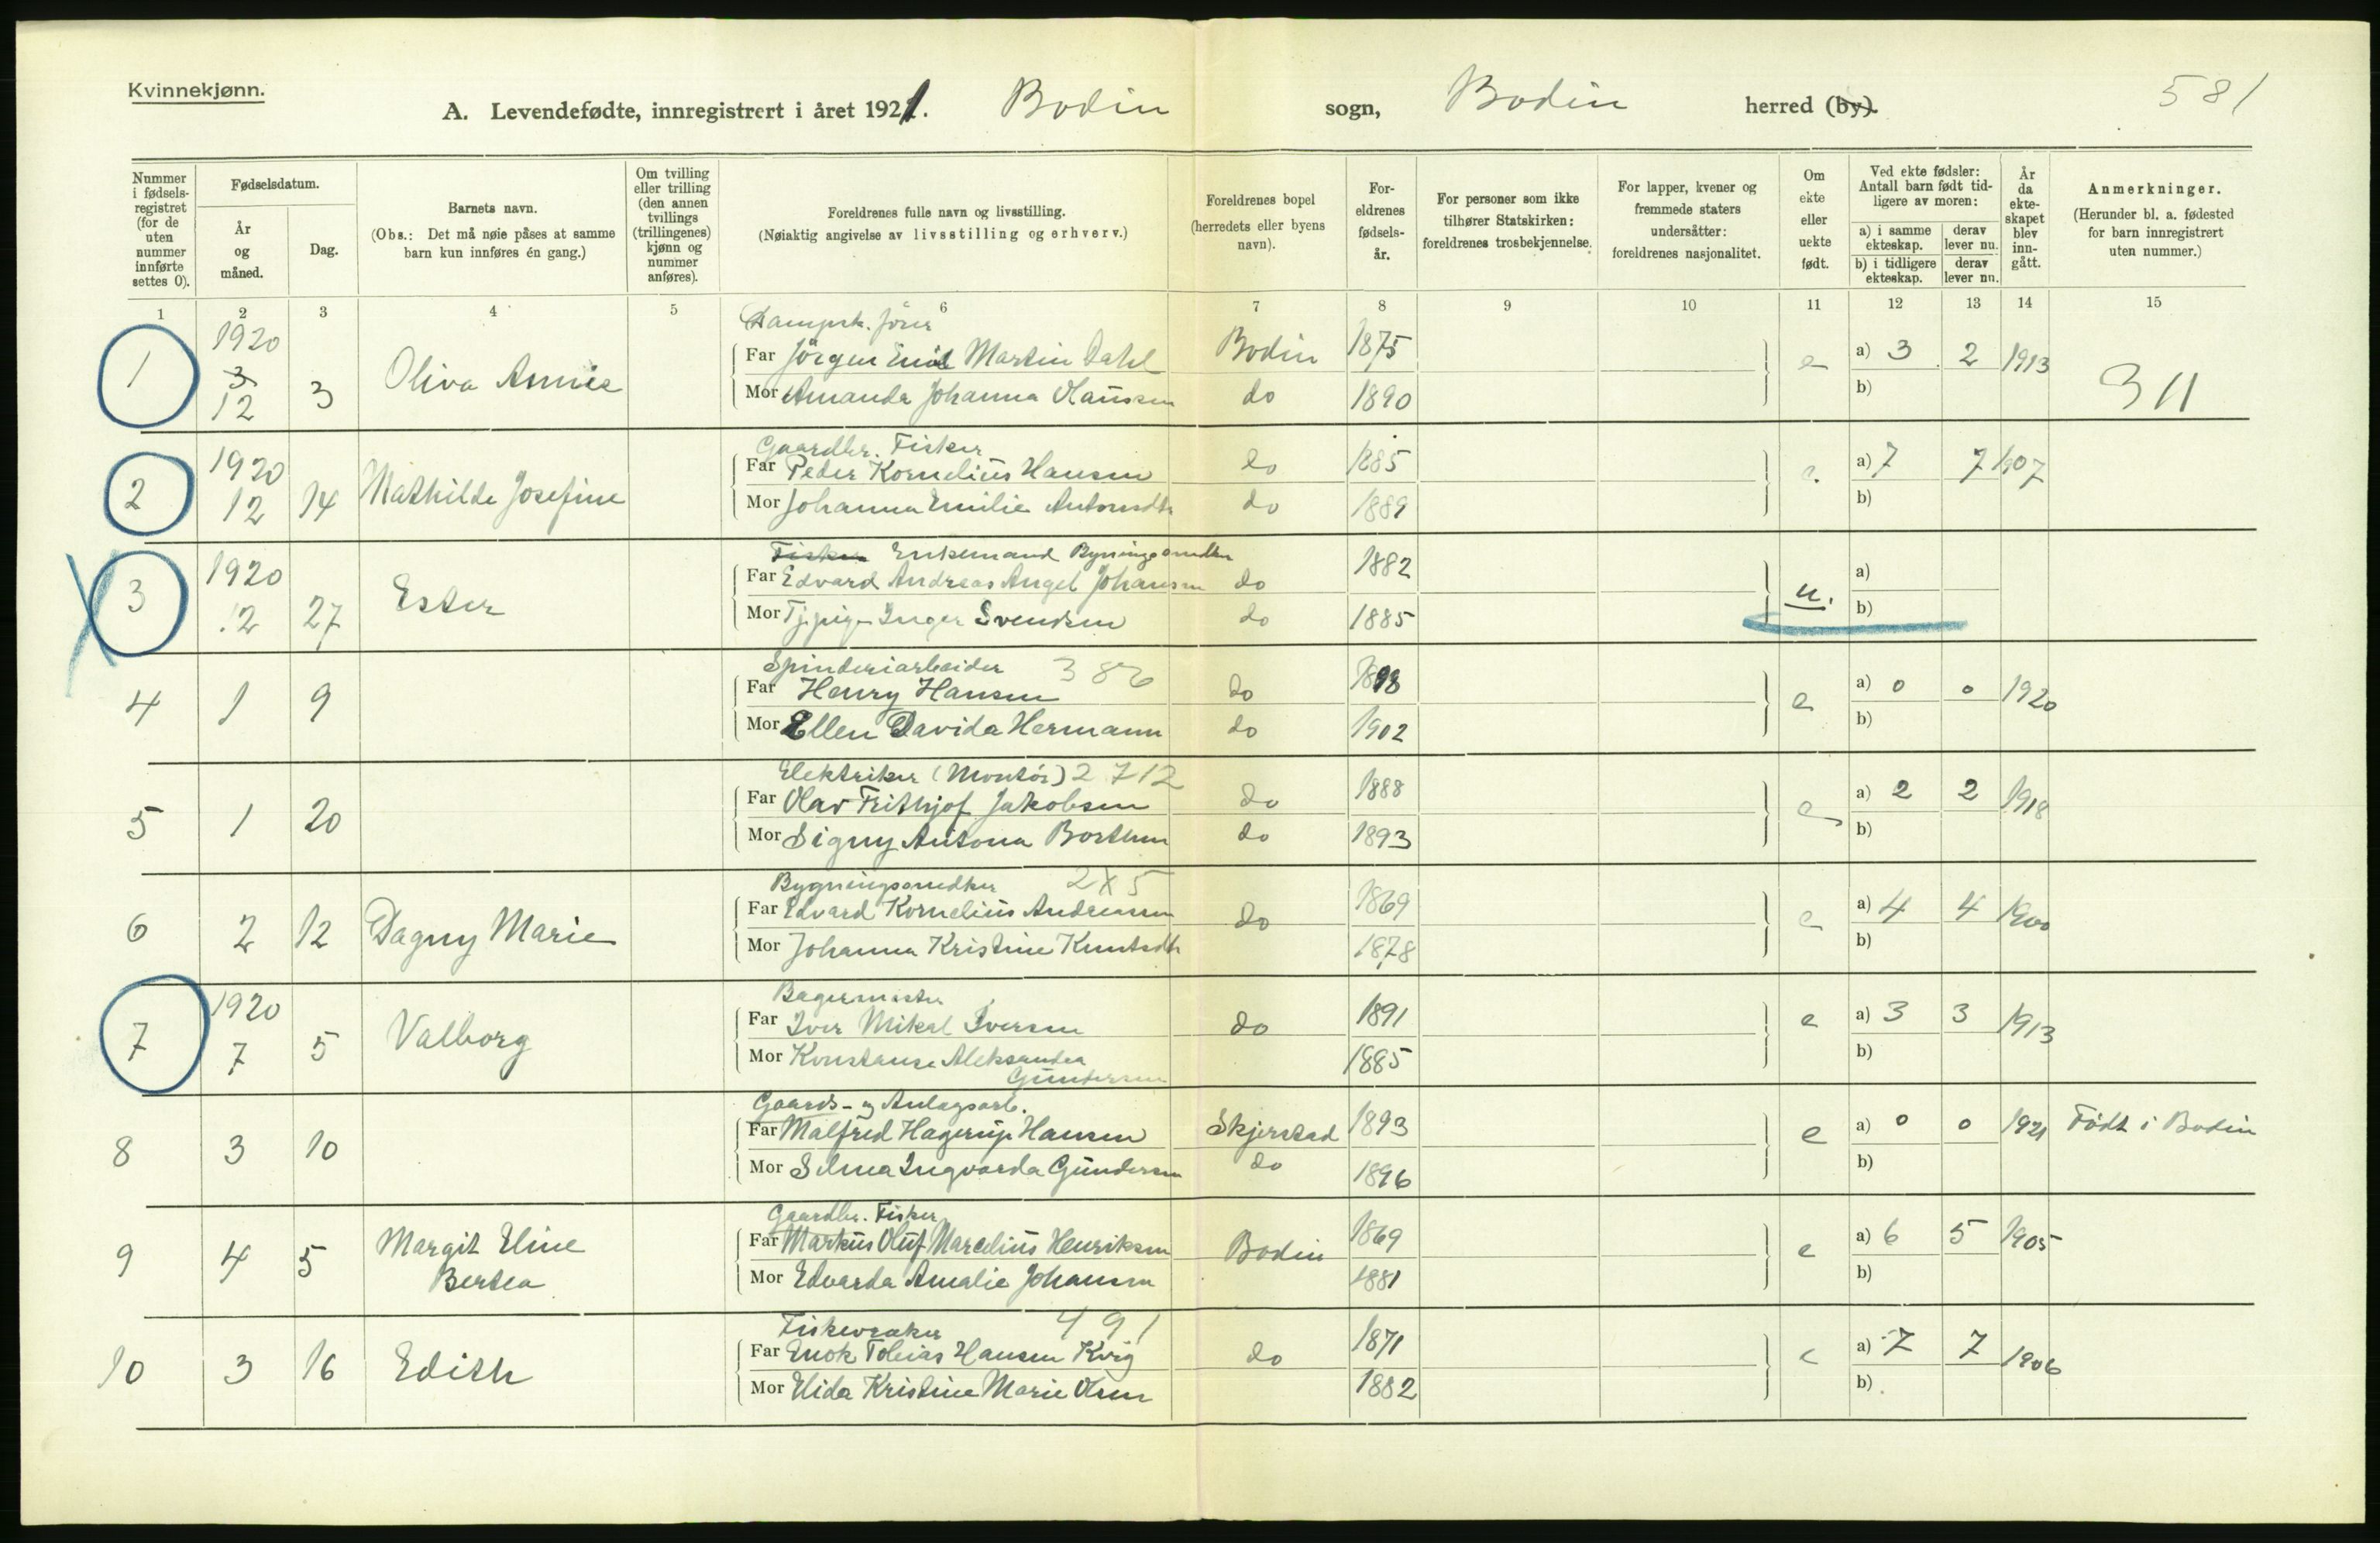 Kvinnekjønn.
581
A. Levendefødte, innregistrert i året 1921. Bodin sogn, Bodin herred (by).
Nummer i fødsels-registret (for de uten nummer innførte settes 0).
Fødselsdatum.
År og måned.
Dag.
Barnets navn.
(Obs.: Det må nøie påses at samme barn kun innføres én gang.)
Om tvilling eller trilling (den annen tvillings (trillingenes) kjønn og nummer anføres).
Foreldrenes fulle navn og livsstilling.
(Nøiaktig angivelse av livsstilling og erhverv.)
Foreldrenes bopel (herredets eller byens navn).
For-eldrenes fødsels-år.
For personer som ikke tilhører Statskirken: foreldrenes trosbekjennelse.
For lapper, kvener og fremmede staters undersåtter: foreldrenes nasjonalitet.
Om ekte eller uekte født.
Ved ekte fødsler: Antall barn født tid-ligere av moren:
a) i samme ekteskap.
derav lever nu.
b) i tidligere ekteskap.
derav lever nu.
År da ekte-skapet blev inn-gått.
Anmerkninger.
(Herunder bl. a. fødested for barn innregistrert uten nummer.)
1 2 3 4 5 6 7 8 9 10 11 12 13 14 15
1920
1 3 12 3 Oliva Annie
Far Jörgen Emil Martin Dahl Bodin 1875 e a) 3 2 1913
Mor Amanda Johanna Hansen do 1890 b) 311
Gaardbr. Fisker
2 1920 12 14 Mathilde Josefine
Far Peder Kornelius Hansen do 1885 e. a) 7 7 1907
Mor Johanna Emilie Antonsdtr do 1889 b)
Fisker Enkemand Bygningssnedker
3 1920 12 27 Ester
Far Edvard Andreas Angel Johansen do 1882 u. a)
Mor Tjpige Inger Svendsen do 1885 b)
Spinderiarbeider 386
4 1 9
Far Henry Hansen do 1898 e a) 0 0 1920
Mor Ellen Davida Hermann do 1902 b)
Elektriker (Montör) 2712
5 1 20
Far Olav Frithjof Jakobsen do 1888 e a) 2 2 1918
Mor Signy Antona Borthen do 1893 b)
Bygningssnedker 2X5
6 2 12 Dagny Marie
Far Edvard Kornelius Andreassen do 1869 e a) 4 4 1900
Mor Johanna Kristine Knutsdtr 1878 b)
Bagermester
7 1920 7 5 Valborg
Far Iver Mikal Iversen do 1891 e a) 3 3 1913
Mor Konstanse Aleksandra Gundersen 1885 b)
Gaards- og Anlagsarb.
8 3 10
Far Malfred Hagerup Hansen Skjerstad 1893 e a) 0 0 1921 Födt i Bodin
Mor Selma Ingvarda Gundersen do 1896 b)
Gaardbr. Fisker
9 4 5 Margit Eline Bertea
Far Markus Oluf Marcelius Henriksen Bodin 1869 e a) 6 5 1905
Mor Edvarda Amalie Johansen 1881 b)
Fiskevraker 491
10 3 16 Edith
Far Enok Tobias Hansen Kvig do 1871 e a) 7 7 1906
Mor Elida Kristine Marie Olsen 1882 b)